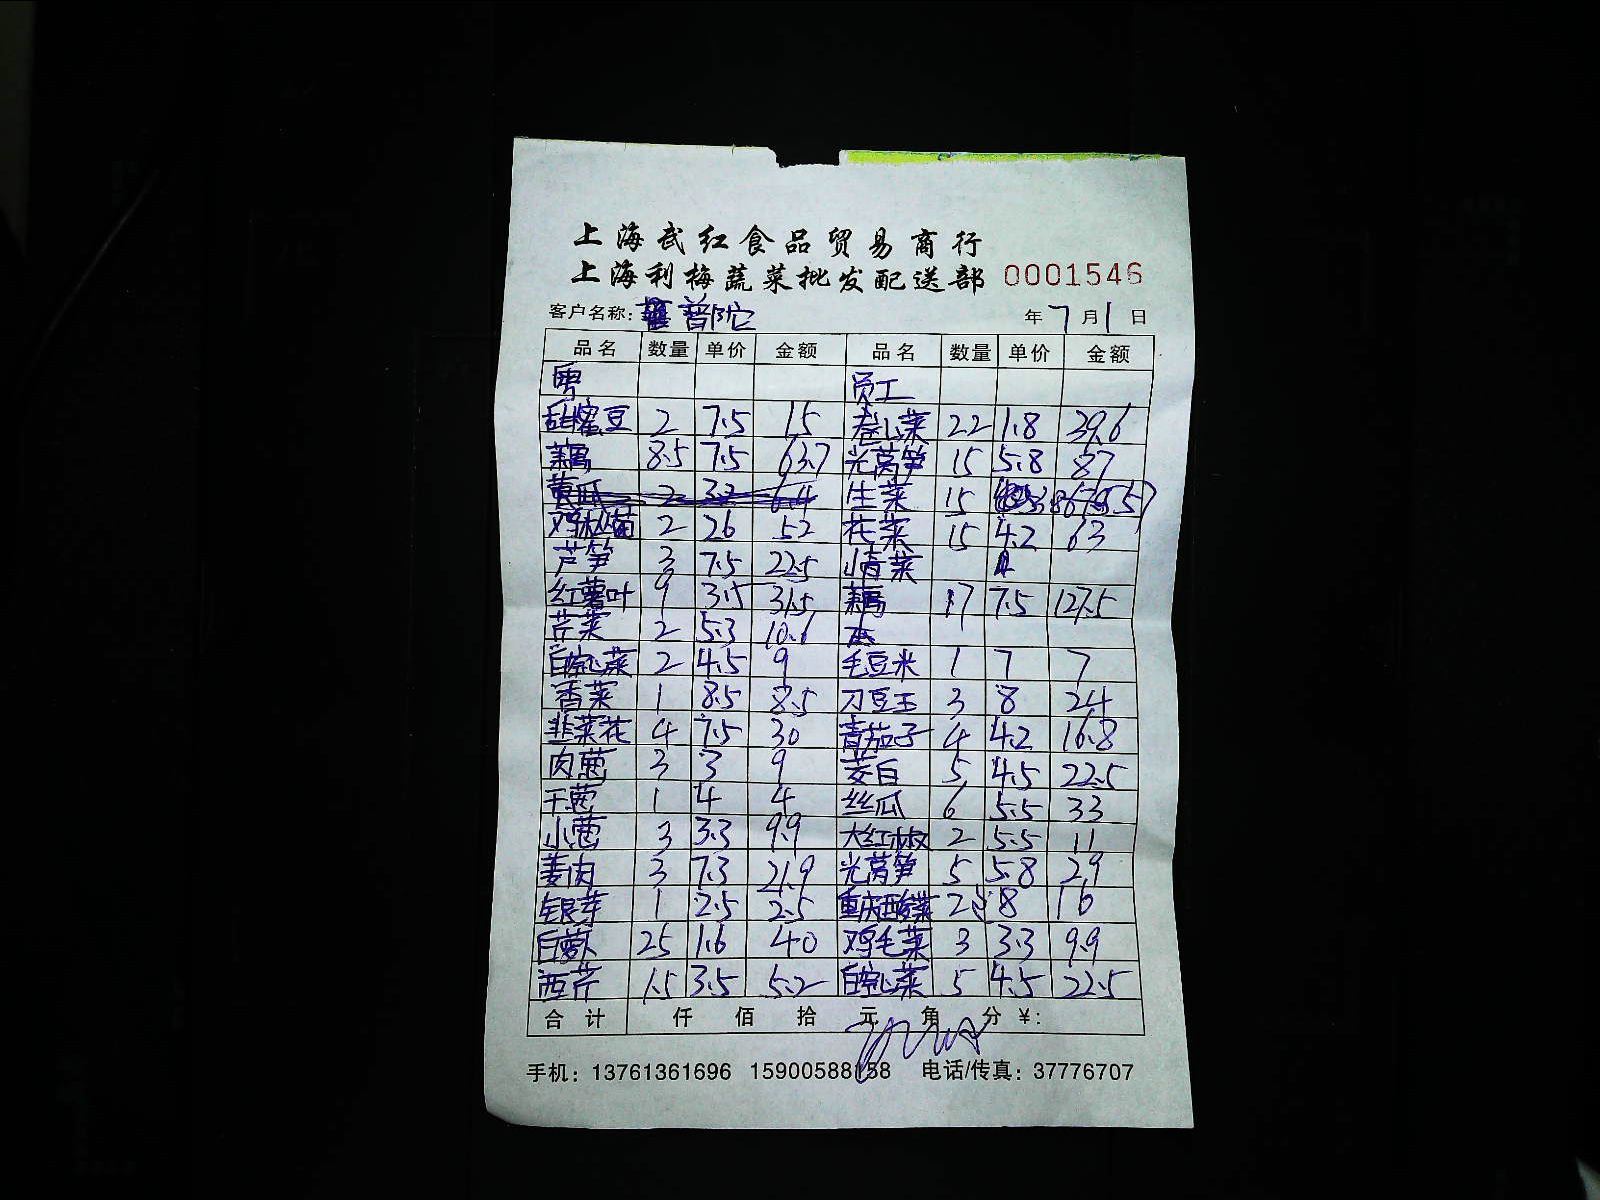 上海武红食品贸易商行
上海利梅蔬菜批发配送部 0001546
客户名称: 普陀 年 7 月 1 日
品名 数量 单价 金额 品名 数量 单价 金额
粤 员工
甜蜜豆 2 7.5 15 卷心菜 22 1.8 39.6
藕 8.5 7.5 63.7 光莴笋 15 5.8 87
黄瓜 2 3.2 6.4 生菜 15
鸡枞苗 2 26 52 花菜 15 4.2 63
芦笋 3 7.5 22.5 小青菜
红薯叶 9 3.5 31.5 藕 17 7.5 127.5
芹菜 2 5.3 10.6
白空心菜 2 4.5 9 毛豆米 1 7 7
香菜 1 8.5 8.5 刀豆王 3 8 24
韭菜花 4 7.5 30 青茄子 4 4.2 16.8
肉葱 3 3 9 茭白 5 4.5 22.5
干葱 1 4 4 丝瓜 6 5.5 33
小葱 3 3.3 9.9 大红椒 2 5.5 11
姜肉 3 7.3 21.9 光莴笋 5 5.8 29
银芽 1 2.5 2.5 重庆酸菜 2 8 16
白萝卜 25 1.6 40 鸡毛菜 3 3.3 9.9
西芹 1.5 3.5 5.2 白空心菜 5 4.5 22.5
合计 仟 佰 拾 元 角 分 ¥:
手机: 13761361696 15900588158 电话/传真: 37776707